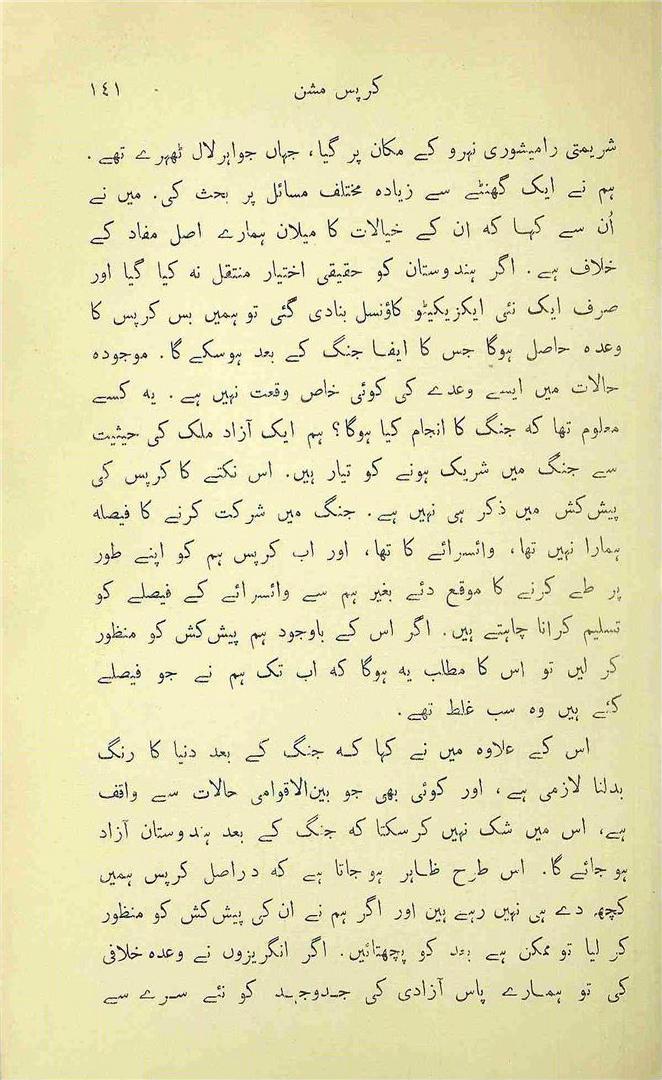 کرپس مشن ١٤١
شریمتی رامیشوری نہرو کے مکان پر گیا، جہاں جواہرلال ٹھہرے تھے.
ہم نے ایک گھنٹے سے زیادہ مختلف مسائل پر بحث کی. میں نے
اُن سے کہا که ان کے خیالات کا میلان ہمارے اصل مفاد کے
خلاف ہے. اگر ہندوستان کو حقیقی اختیار منتقل نه کیا گیا اور
صرف ایک نئی ایکزیکیٹو کاؤنسل بنادی گئی تو ہمیں بس کرپس کا
وعدہ حاصل ہوگا جس کا ایفا جنگ کے بعد ہوسکے گا. موجودہ
حالات میں ایسے وعدے کی کوئی خاص وقعت نہیں ہے. یه کسے
معلوم تھا که جنگ کا انجام کیا ہوگا؟ ہم ایک آزاد ملک کی حیثیت
سے جنگ میں شریک ہونے کو تیار ہیں. اس نکتے کا کرپس کی
پیش کش میں ذکر ہی نہیں ہے. جنگ میں شرکت کرنے کا فیصله
ہمارا نہیں تھا، وائسرائے کا تھا، اور اب کرپس ہم کو اپنے طور
پر طے کرنے کا موقع دئے بغیر ہم سے وائسرائے کے فیصلے کو
تسلیم کرانا چاہتے ہیں. اگر اس کے باوجود ہم پیش کش کو منظور
کر لیں تو اس کا مطلب یه ہوگا که اب تک ہم نے جو فیصلے
کئے ہیں وہ سب غلط تھے.
اس کے علاوہ میں نے کہا کہ جنگ کے بعد دنیا کا رنگ
بدلنا لازمی ہے، اور کوئی بھی جو بین‌الاقوامی حالات سے واقف
ہے، اس میں شک نہیں کرسکتا که جنگ کے بعد ہندوستان آزاد
ہو جائے گا. اس طرح ظاہر ہو جاتا ہے که دراصل کرپس ہمیں
کچھ دے ہی نہیں رہے ہین اور اگر ہم نے ان کی پیش کش کو منظور
کر لیا تو ممکن ہے بعد کو پچھتائیں. اگر انگریزوں نے وعدہ خلافی
کی تو ہمارے پاس آزادی کی جدوجہد کو نئے سرے سے